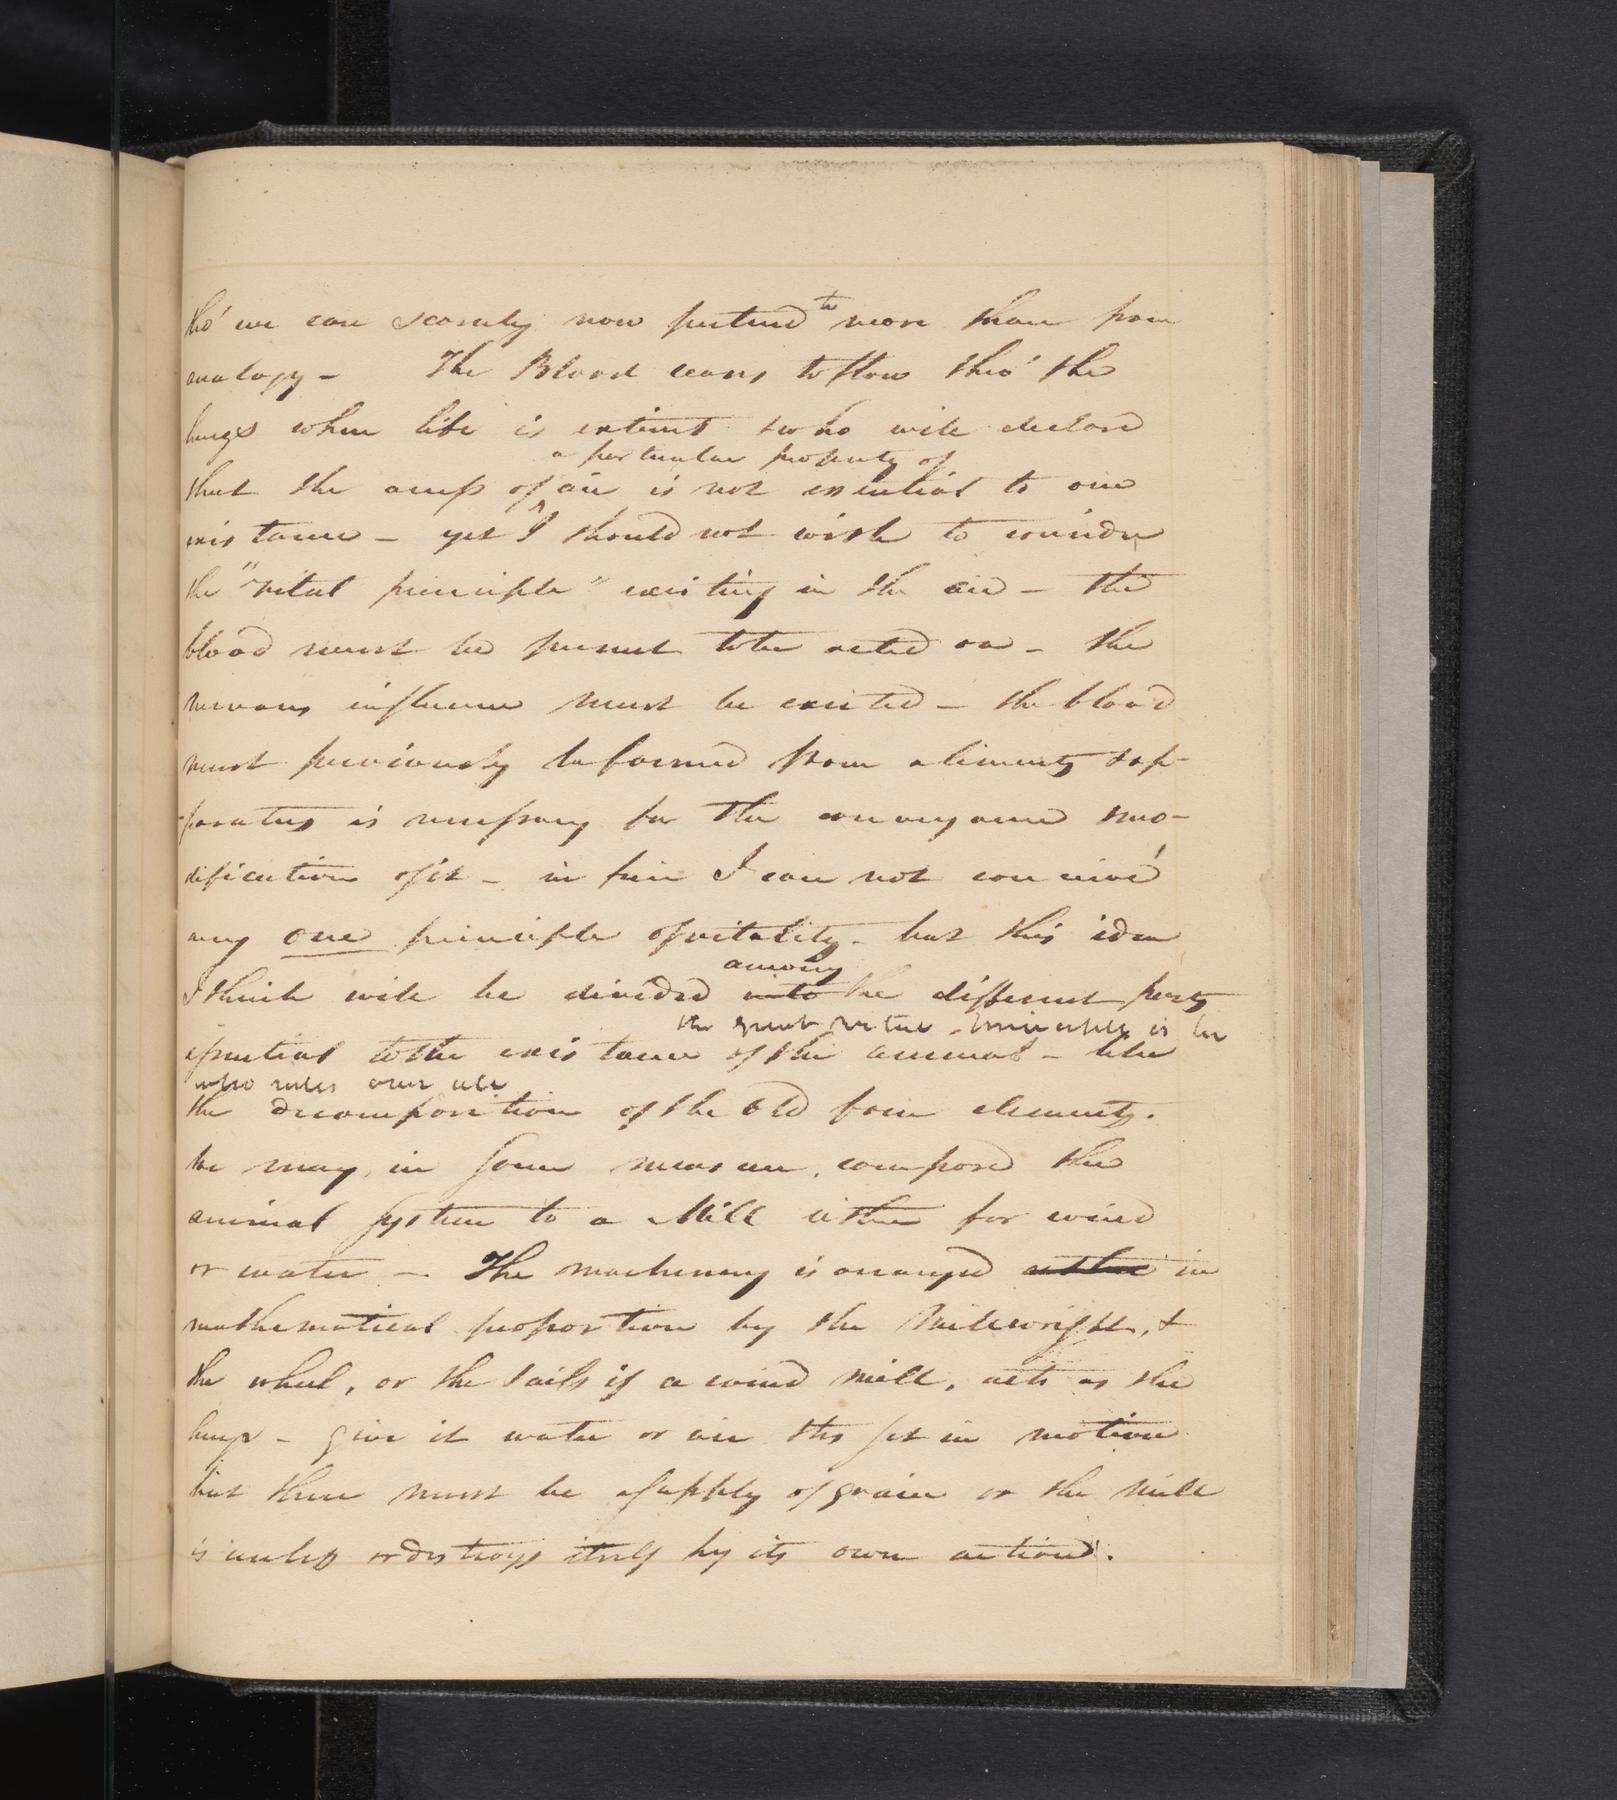 tho' we can scarcely now pretend to more than from
analogy – The Blood ceases to flow thro' the
lungs when life is extinct & who will declare
a particular property of
that the access of air is not essential to our
existance – yet I should not wish to consider
the "vital principle" existing in the air – the
blood must be present to be acted on – the
nervous influence must be excited – the blood
must previously be formed from aliments & ap-
paratus is necessary for the conveyance & mo-
dification of it – in fine I can not conceive
any one principle of vitality – but this idea
among
I think will be divided into the different parts
the great virtue principle is he
essential to the existance of the animal – like
who rules over all
the decomposition of the old four elements.
We may, in some measure, compare the
animal system to a Mill either for wind
or water – The machinery is arranged either in
mathematical proportion by the Millwright, &
the wheel, or the sails if a wind mill, acts as the
lungs – give it water or air tis set in motion
but there must be a supply of grain or the mill
is useless or destroys itself by its own action.